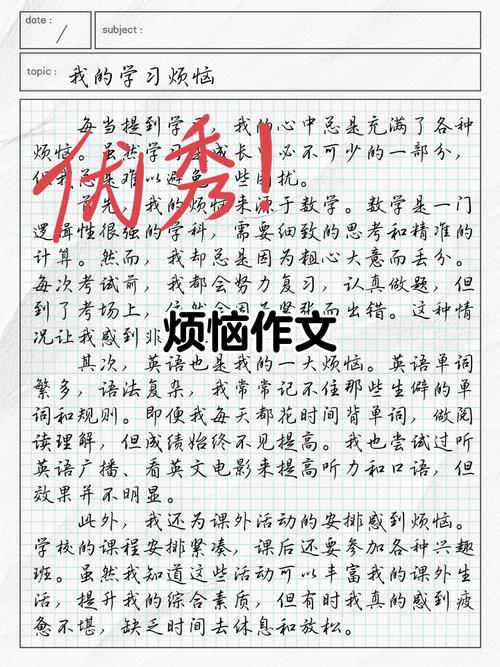 date：
subject：
topic： 我的学习烦恼
每当提到学习，我的心中总是充满了各种
烦恼。虽然学习是成长中必不可少的一部分，
但我总是难以避免一些困扰。
首先，我的烦恼来源于数学。数学是一门
逻辑性很强的学科，需要细致的思考和精准的
计算。然而，我却总是因为粗心大意而丢分。
每次考试前，我都会努力复习，认真做题，但
到了考场上，依然会因为紧张而出错。这种情
况让我感到非
其次，英语也是我的一大烦恼。英语单词
繁多，语法复杂，我常常记不住那些生僻的单
词和规则。即便我每天都花时间背单词，做阅
读理解，但成绩始终不见提高。我也尝试过听
英语广播、看英文电影来提高听力和口语，但
效果并不明显。
此外，我还为课外活动的安排感到烦恼。
学校的课程安排紧凑，课后还要参加各种兴趣
班。虽然我知道这些活动可以丰富我的课外生
活，提升我的综合素质，但有时我真的感到疲
惫不堪，缺乏时间去休息和放松。
优秀！
烦恼作文